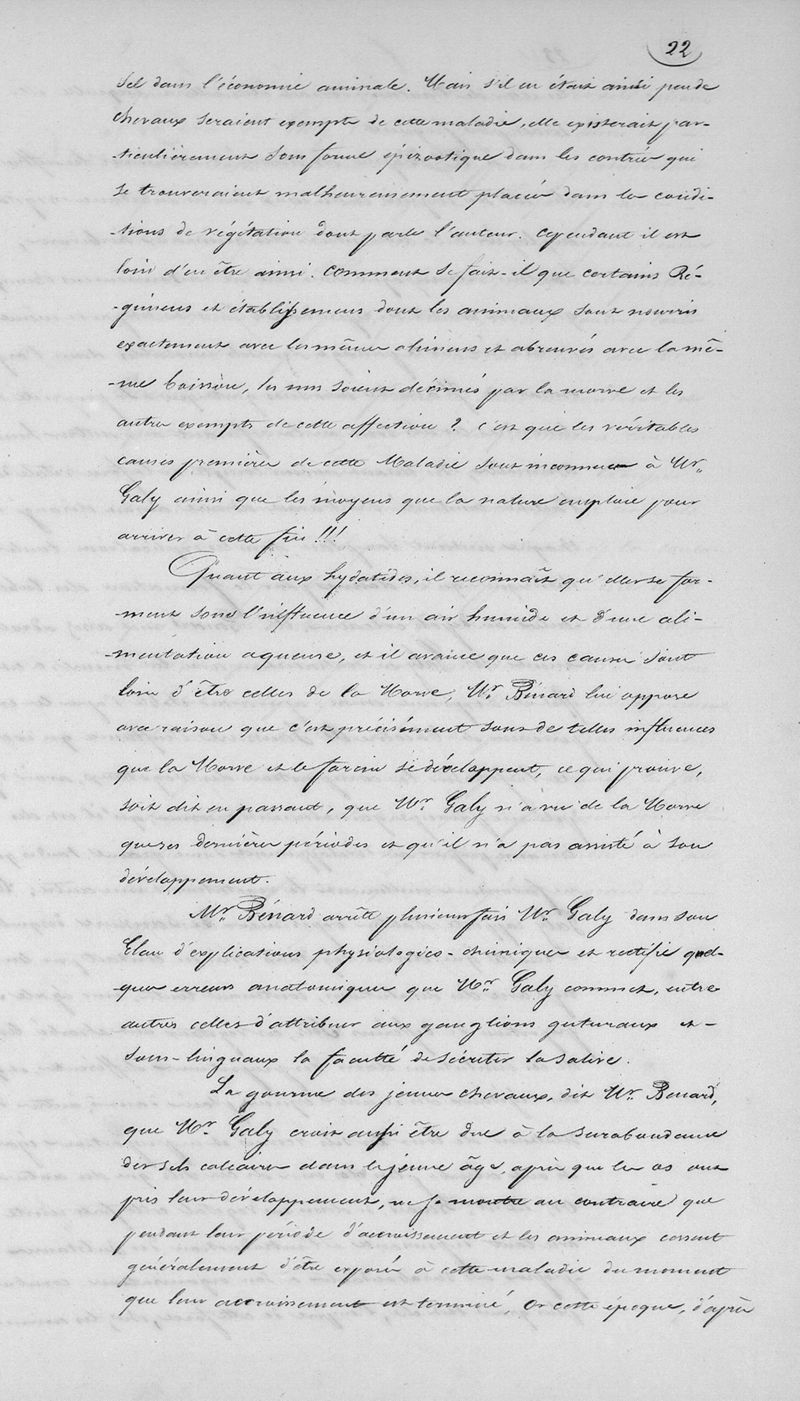 22
sel dans l'économie animale. Mais s'il en était ainsi peu de
chevaux seraient exempts de cette maladie, elle existerait par-
-ticulièrement sous forme épizootique dans les contrées qui
se trouveraient malheureusement placées dans les condi-
-tions de végétation dont parle l'auteur. Cependant il est
loin d'en être ainsi. Comment se fait-il que certains Ré-
-gimens et établissemens dont les animaux sont nourris
exactement avec les mêmes alimens et abreuvés avec la mê-
-me boisson, les uns soient décimés par la morve et les
autres exempts de cette affection ? C'est que les véritables
causes premières de cette Maladie sont inconnues à Mr.
Galy ainsi que les moyens que la nature emploie pour
arriver à cette fin !!!
Quant aux hydatides, il reconnaît qu'elles se for-
-ment sous l'influence d'un air humide et d'une ali-
-mentation aqueuse, et il avance que ces causes sont
loin d'être celles de la Morve, Mr. Bénard lui oppose
avec raison que c'est précisément sous de telles influences
que la Morve et le farcin se développent, ce qui prouve,
soit dit en passant, que Mr. Galy n'a vu de la Morve
que ses dernières périodes et qu'il n'a pas assisté à son
développement.
Mr. Bénard arrête plusieurs fois Mr. Galy dans son
Elan d'explications physiologico-chimiques et rectifie quel-
ques erreurs anatomiques que Mr. Galy commet, entre
autres celles d'attribuer aux ganglions gutturaux et -
sous-linguaux la faculté de sécréter la salive.
La gourme des jeunes chevaux, dit Mr. Benard,
que Mr. Galy croit aussi être due à la surabondance
des sels calcaires dans le jeune âge, après que les os ont
pris leur développement, ne se montre au contraire que
pendant leur période d'accroissement et les animaux cessent
généralement d'être exposés à cette maladie du moment
que leur accroissement est terminé, Or cette époque, d'après